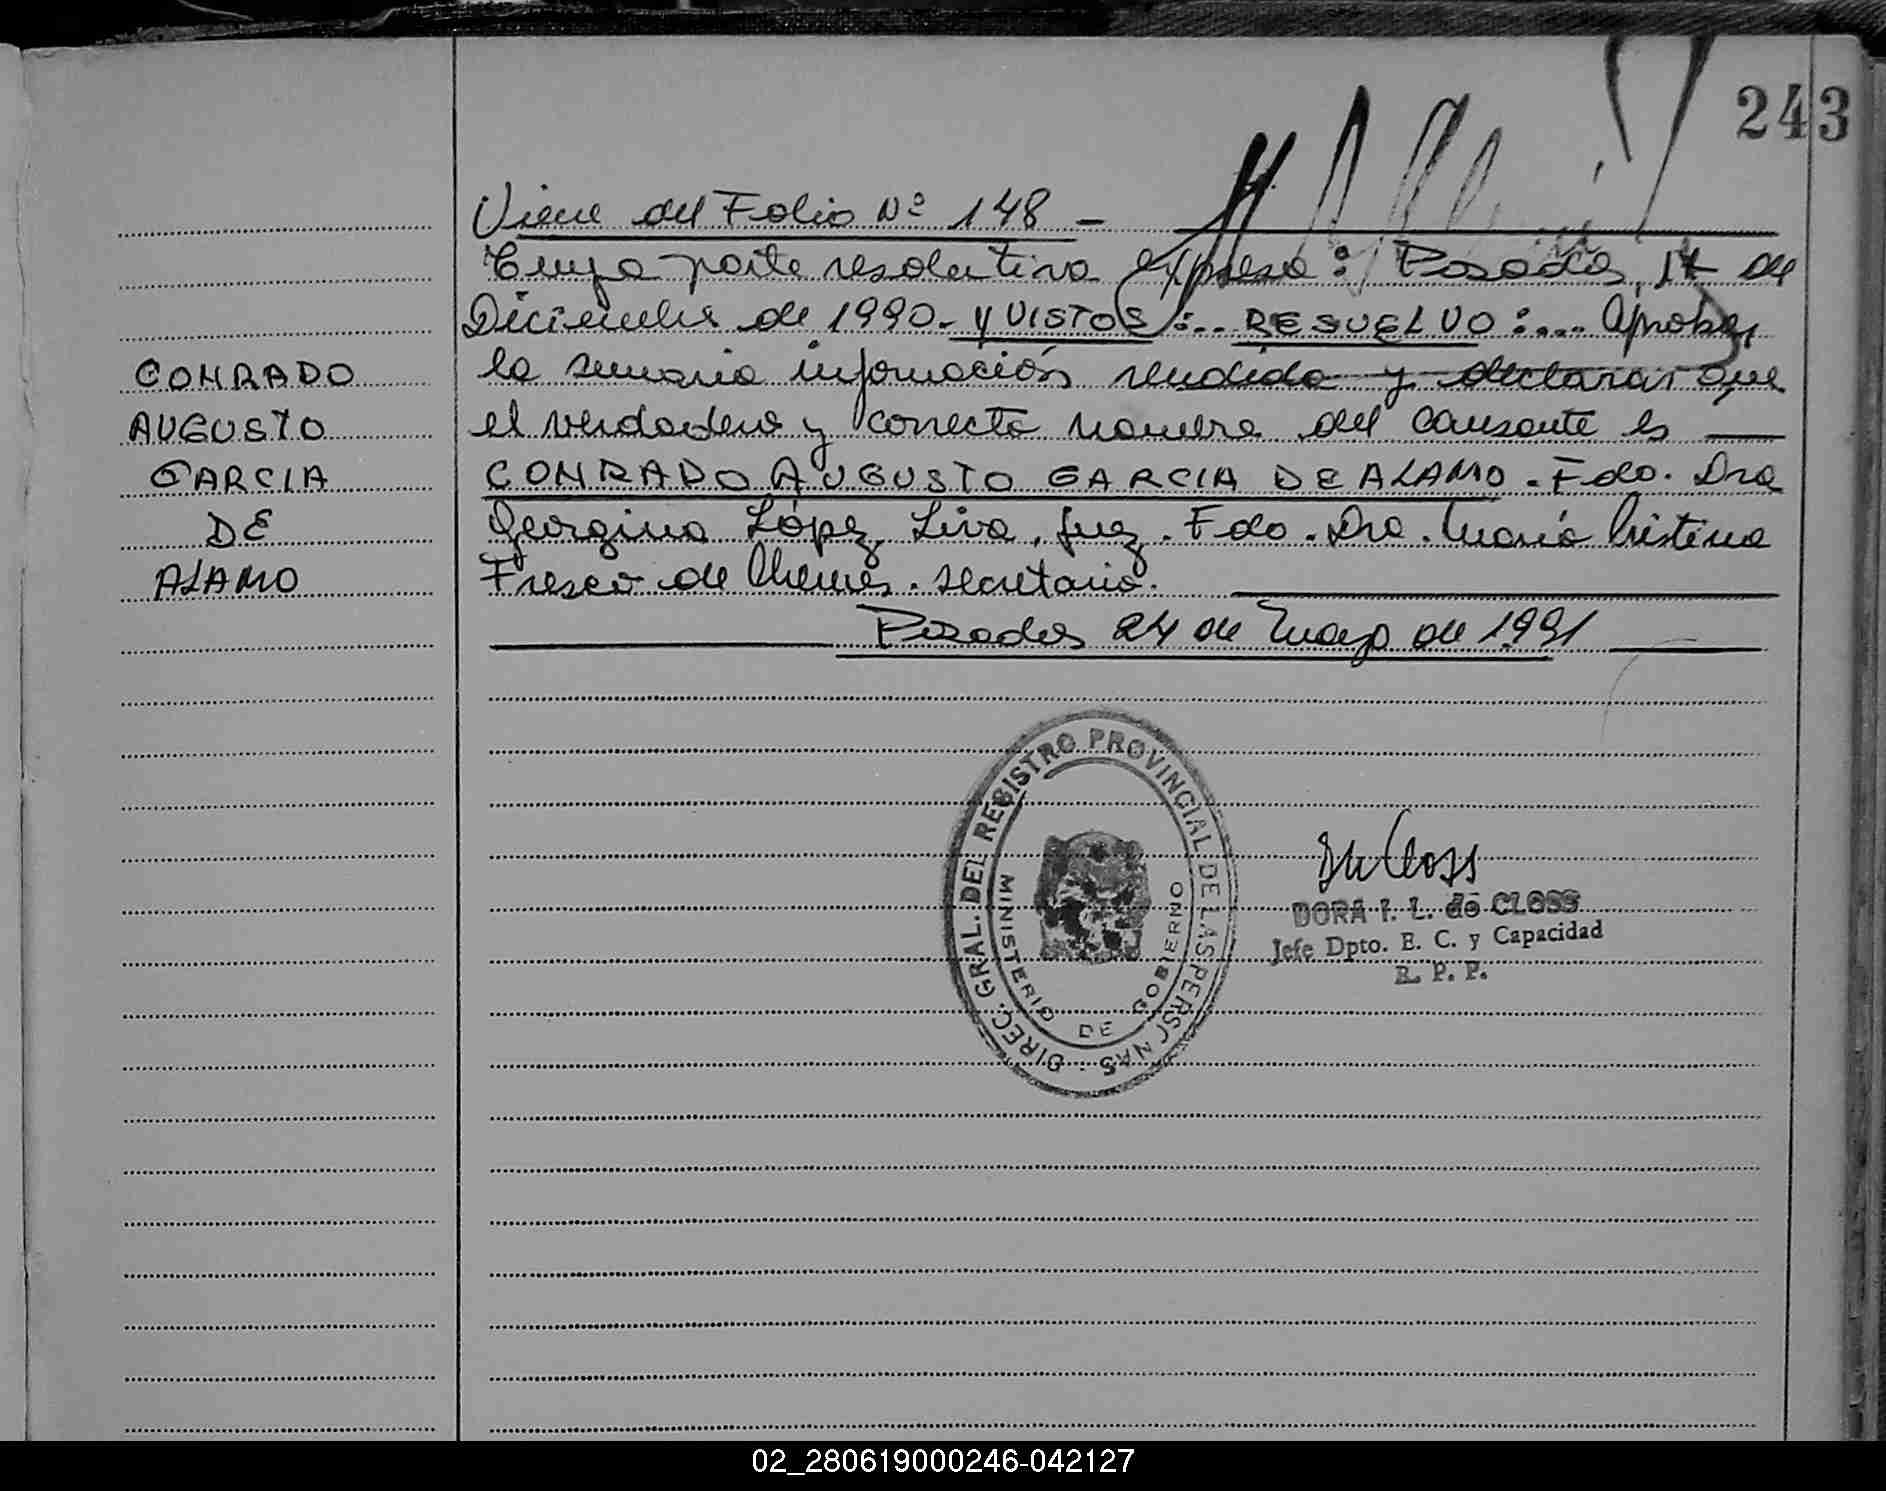 243
Viene del Folio Nº 148 -
Cuya parte resolutiva expresa: Posadas, 17 de
Diciembre de 1990.- Y VISTOS:.. RESUELVO:... Aprobar
la sumaria información rendida y declarar que
el verdadero y correcto nombre del causante es
CONRADO AUGUSTO GARCIA DE ALAMO. Fdo. Dra
Georgina López Liva, Juez. Fdo. Dra. María Cristina
Fresco de Chemes. secretaria.
Posadas 24 de Mayo de 1991
CONRADO
AUGUSTO
GARCIA
DE
ALAMO
DIREC. GRAL. DEL REGISTRO PROVINCIAL DE LAS PERSONAS
MINISTERIO DE GOBIERNO
DORA I. L. de CLOSS
Jefe Dpto. E. C. y Capacidad
R. P. P.
02_280619000246-042127